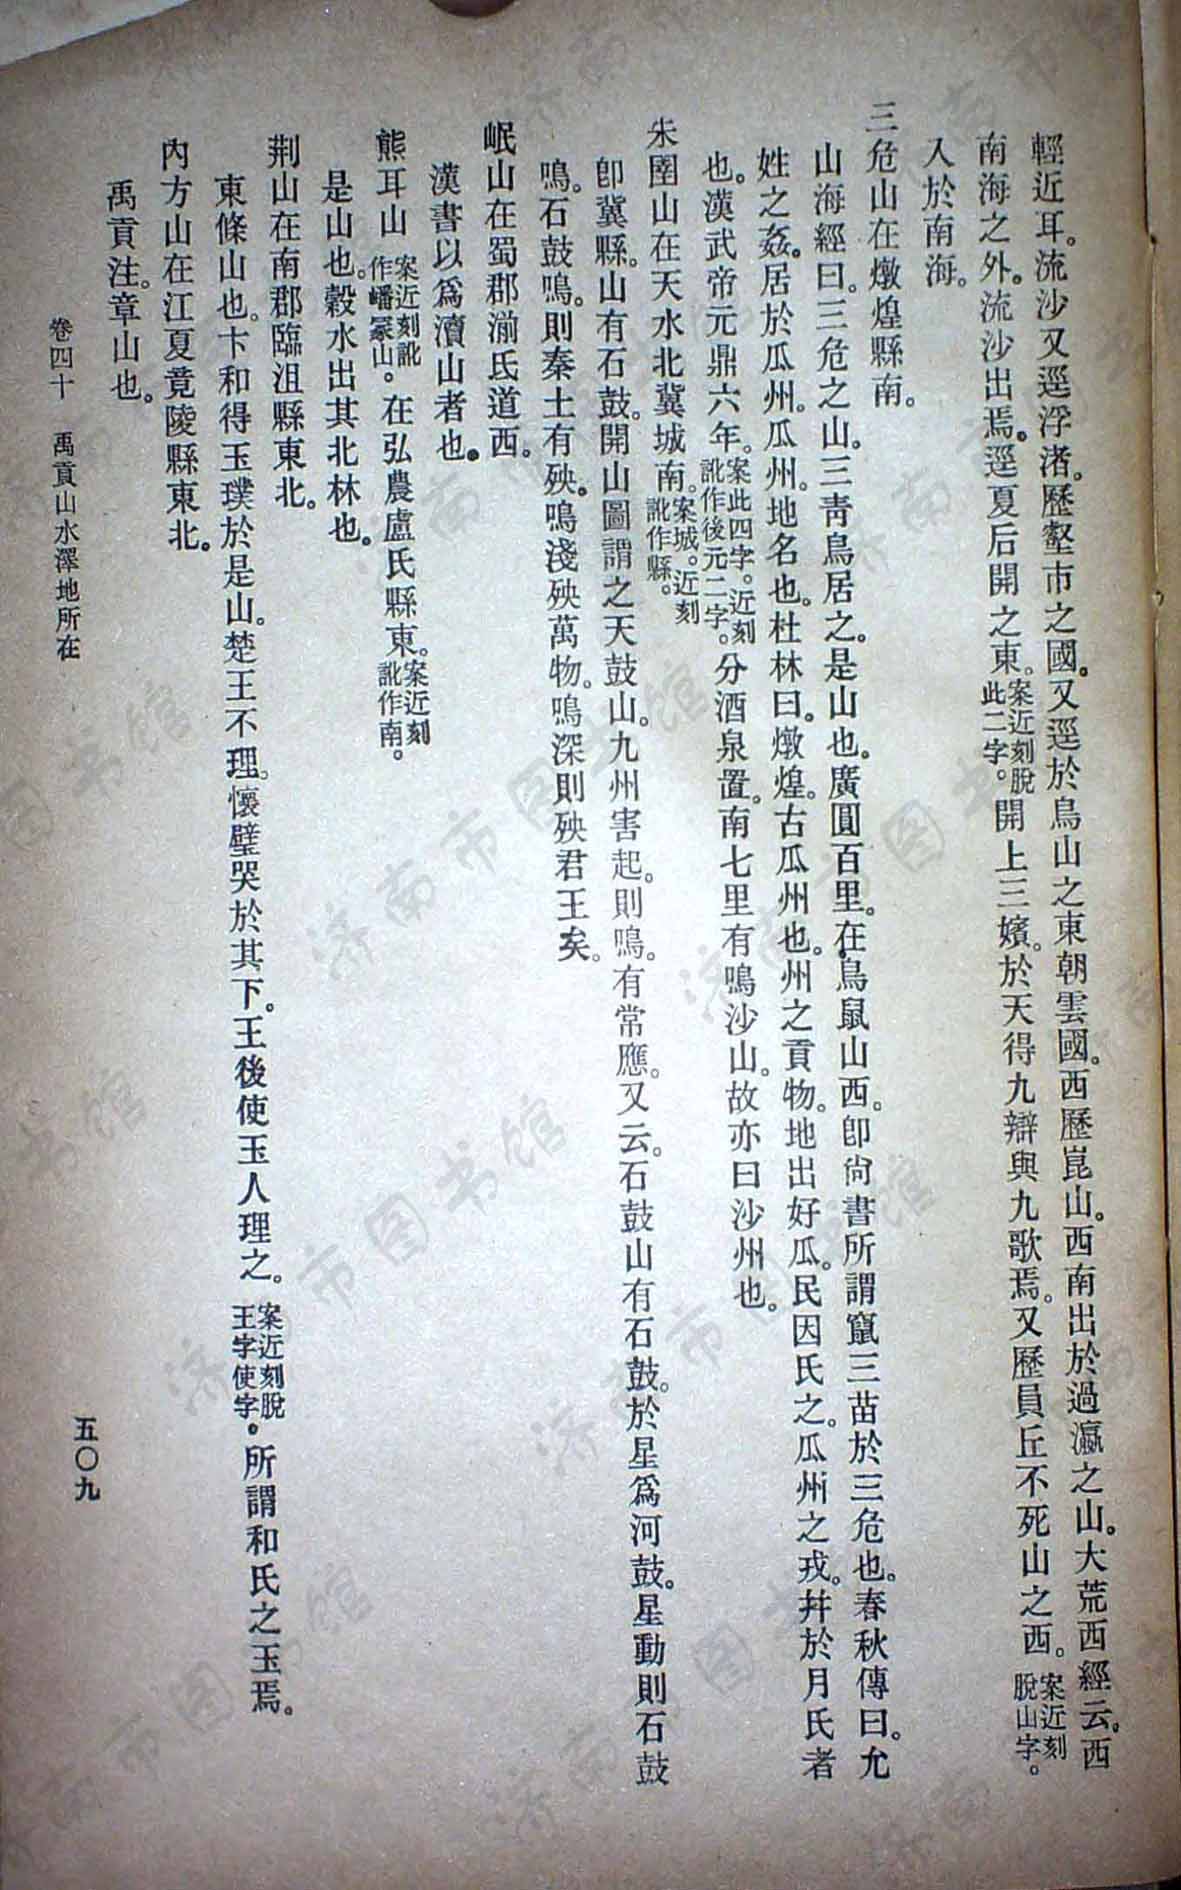 輕近耳。流沙又逕浮渚。歷壑市之國。又逕於鳥山之東朝雲國。西歷崑山。西南出於過瀛之山。大荒西經云。西
南海之外。流沙出焉。逕夏后開之東。案近刻脫此二字。開上三嬪。於天得九辯與九歌焉。又歷員丘不死山之西。案近刻脫山字。
入於南海。
三危山在燉煌縣南。
山海經曰。三危之山。三青鳥居之。是山也。廣圓百里。在鳥鼠山西。卽尙書所謂竄三苗於三危也。春秋傳曰。允
姓之姦。居於瓜州。瓜州。地名也。杜林曰。燉煌。古瓜州也。州之貢物。地出好瓜。民因氏之。瓜州之戎。幷於月氏者
也。漢武帝元鼎六年。案此四字。近刻訛作後元二字。分酒泉置。南七里有鳴沙山。故亦曰沙州也。
朱圉山在天水北冀城南。案城。近刻訛作縣。
卽冀縣。山有石鼓。開山圖謂之天鼓山。九州害起。則鳴。有常應。又云。石鼓山有石鼓。於星爲河鼓。星動則石鼓
鳴。石鼓鳴。則秦土有殃。鳴淺殃萬物。鳴深則殃君王矣。
岷山在蜀郡湔氐道西。
漢書以爲瀆山者也。
熊耳山案近刻訛作嶓冢山。在弘農盧氏縣東。案近刻訛作南。
是山也。穀水出其北林也。
荆山在南郡臨沮縣東北。
東條山也。卞和得玉璞於是山。楚王不理。懷璧哭於其下。王後使玉人理之。案近刻脫王字使字。所謂和氏之玉焉。
內方山在江夏竟陵縣東北。
禹貢注。章山也。
卷四十 禹貢山水澤地所在
五〇九
济南市图书馆